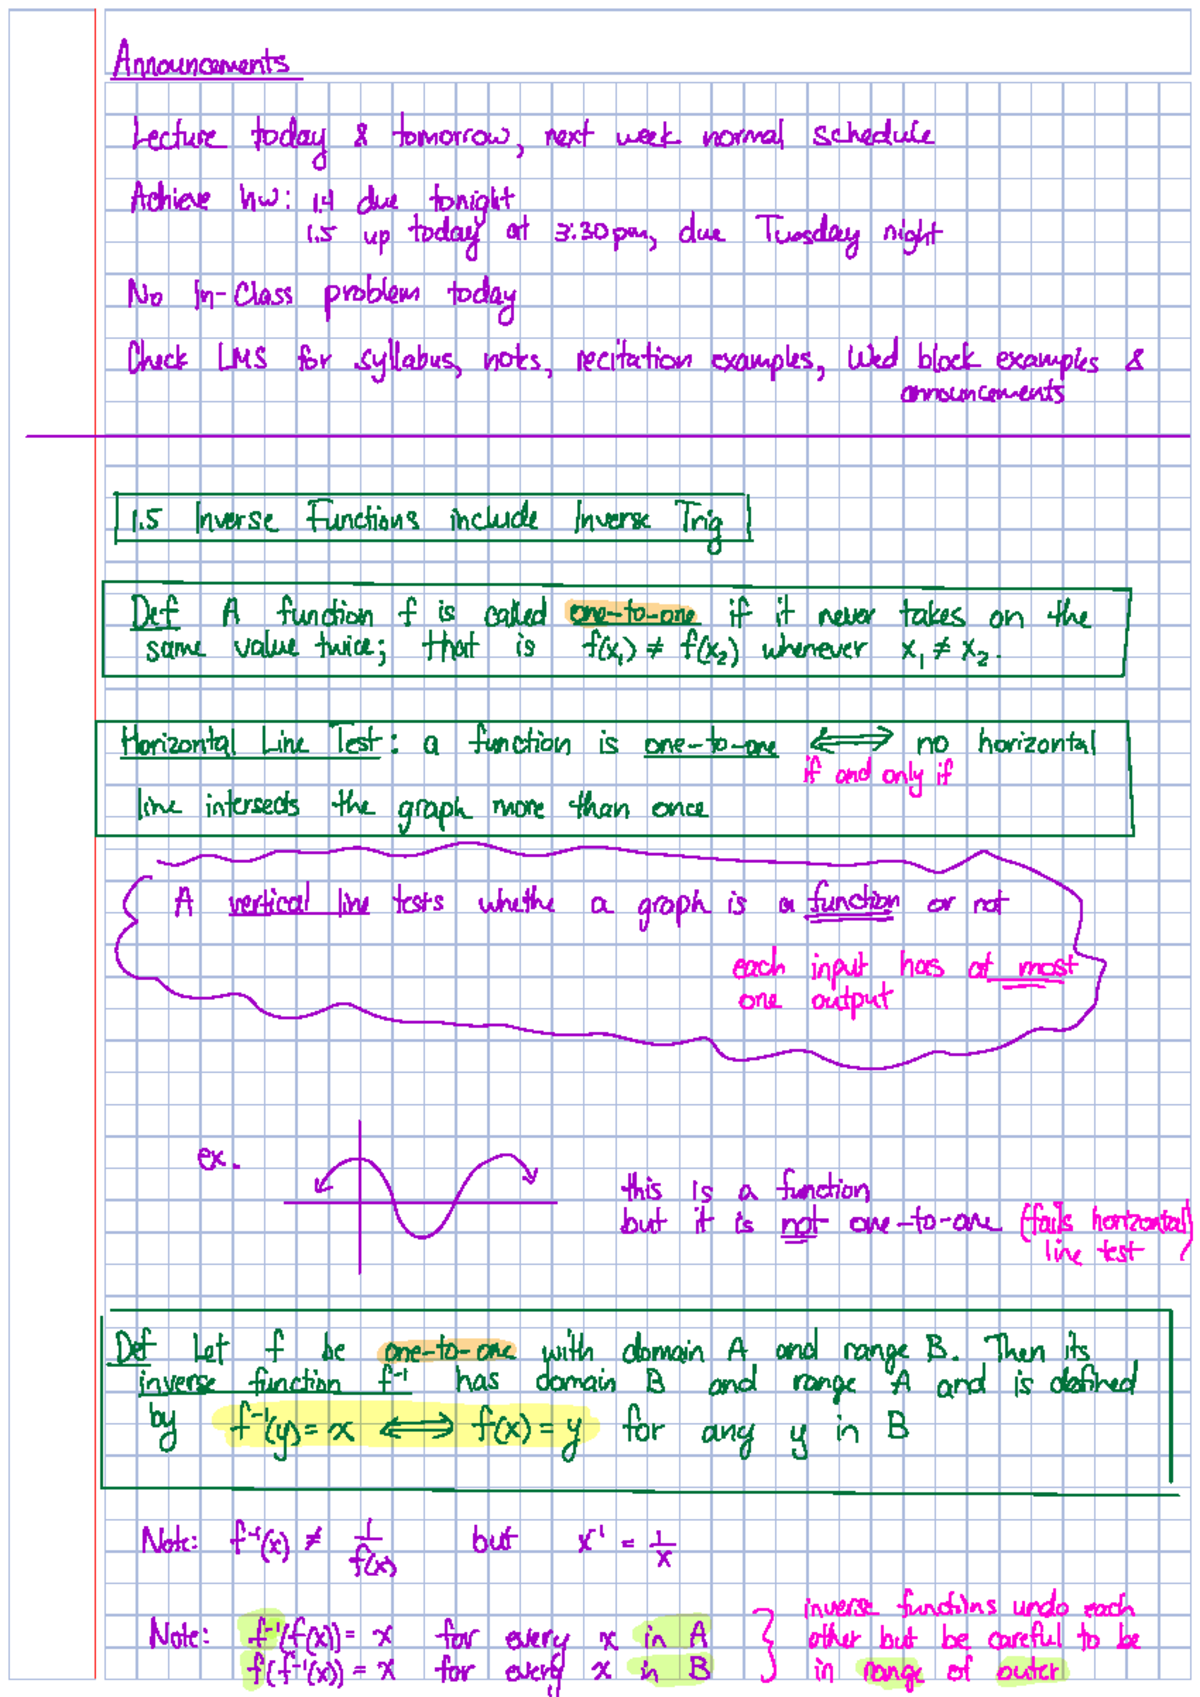 Announcements
Lecture today & tomorrow, next week normal schedule
Achieve hw: 1.4 due tonight
1.5 up today at 3:30pm, due Tuesday night
No In-Class problem today
Check LMS for syllabus, notes, recitation examples, Wed block examples &
announcements
1.5 Inverse Functions include Inverse Trig
Def A function f is called one-to-one if it never takes on the
same value twice; that is f(x₁) ≠ f(x₂) whenever x₁ ≠ x₂.
Horizontal Line Test: a function is one-to-one ⟺ no horizontal
if and only if
line intersects the graph more than once
A vertical line tests whethe a graph is a function or not
each input has at most
one output
ex.
this is a function
but it is not one-to-one (fails horizontal
line test)
Def Let f be one-to-one with domain A and range B. Then its
inverse function f⁻¹ has domain B and range A and is defined
by f⁻¹(y) = x ⟺ f(x) = y for any y in B
Note: f⁻¹(x) ≠ 1/f(x) but x⁻¹ = 1/x
inverse functions undo each
Note: f⁻¹(f(x)) = x for every x in A } other but be careful to be
f(f⁻¹(x)) = x for every x in B in range of outer